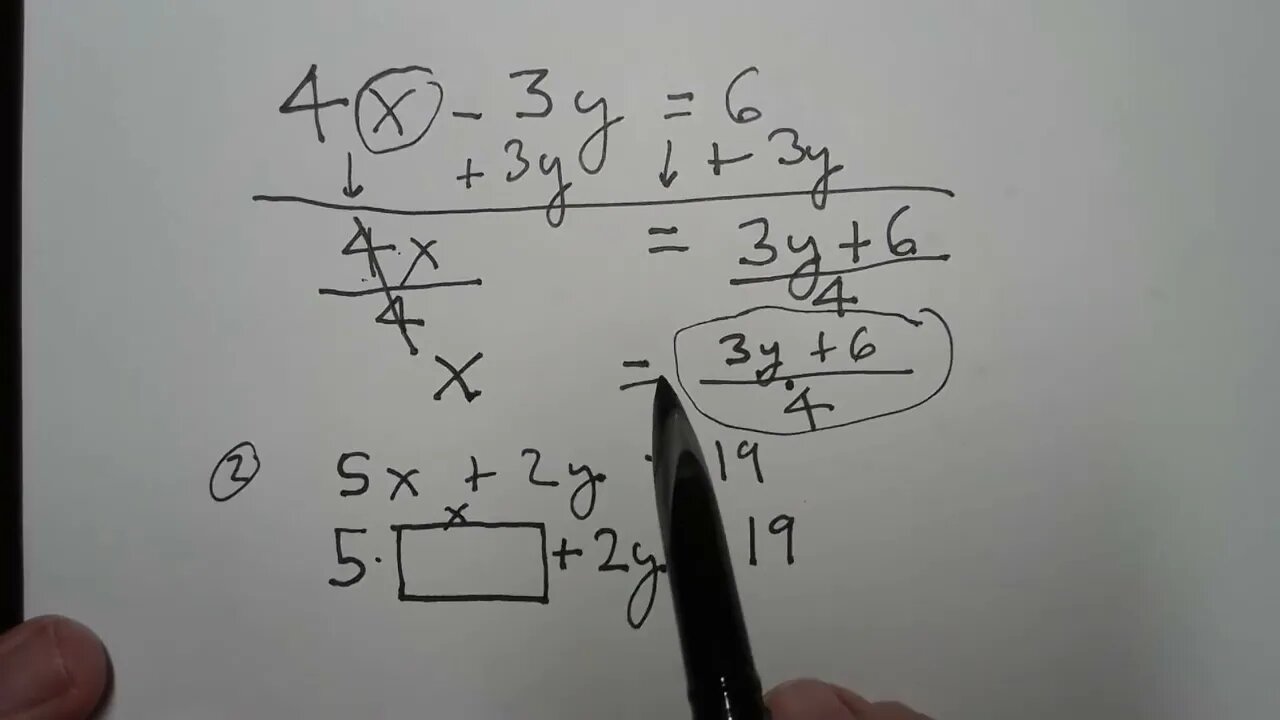 4x - 3y = 6
↓ + 3y ↓ + 3y
4·x = 3y + 6
4 4
x = 3y + 6
4
② 5x + 2y 19
x
5· + 2y 19